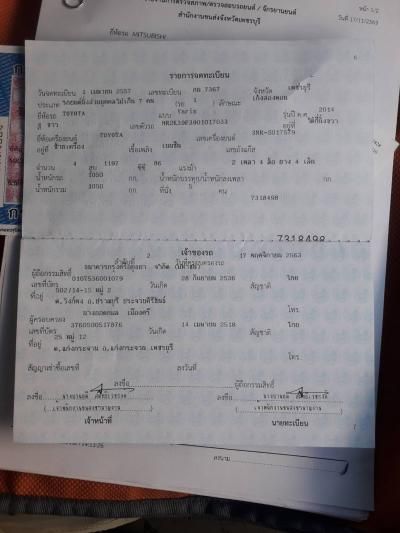 หน้า 1/2
วันที่ 17/11/2563
สำนักงานขนส่งจังหวัดเพชรบุรี
ยี่ห้อรถ MITSUBISHI
6
รายการจดทะเบียน
วันจดทะเบียน 1 เมษายน 2557 เลขทะเบียน กธ 7367 จังหวัด เพชรบุรี
ประเภท รถยนต์นั่งส่วนบุคคลไม่เกิน 7 คน (รย 1) ลักษณะ เก๋งสองตอน
ยี่ห้อรถ TOYOTA แบบ Yaris รุ่นปี ค.ศ. 2014
สี ขาว เลขตัวรถ MR2K39F3901017033 อยู่ที่
ยี่ห้อเครื่องยนต์ TOYOTA เลขเครื่องยนต์ 3NR-S017579
อยู่ที่ เชื้อเพลิง เบนซิน เลขถังแก๊ส
จำนวน 4 สูบ 1197 ซีซี 86 แรงม้า 2 เพลา 4 ล้อ ยาง 4 เส้น
น้ำหนักรถ 1050 กก. น้ำหนักบรรทุก/น้ำหนักลงเพลา กก.
น้ำหนักรวม 1050 กก. ที่นั่ง 5 คน
7318498
7318498
เจ้าของรถ
ลำดับที่ 2 วันที่ครอบครองรถ 17 พฤศจิกายน 2563
ผู้ถือกรรมสิทธิ์
เลขที่บัตร 0107536001079 วันเกิด 28 กันยายน 2536 สัญชาติ ไทย
ที่อยู่ 502/14-15 หมู่ 2
โทร.
ผู้ครอบครอง
เลขที่บัตร 3760500517876 วันเกิด 14 เมษายน 2518 สัญชาติ ไทย
ที่อยู่ 25 หมู่ 12
ต.แก่งกระจาน อ.แก่งกระจาน เพชรบุรี
โทร.
สัญญาเช่าซื้อเลขที่ ลงวันที่
ลงชื่อ ผู้ถือกรรมสิทธิ์
ลงชื่อ ลงชื่อ
เจ้าหน้าที่ นายทะเบียน
ลงนาม